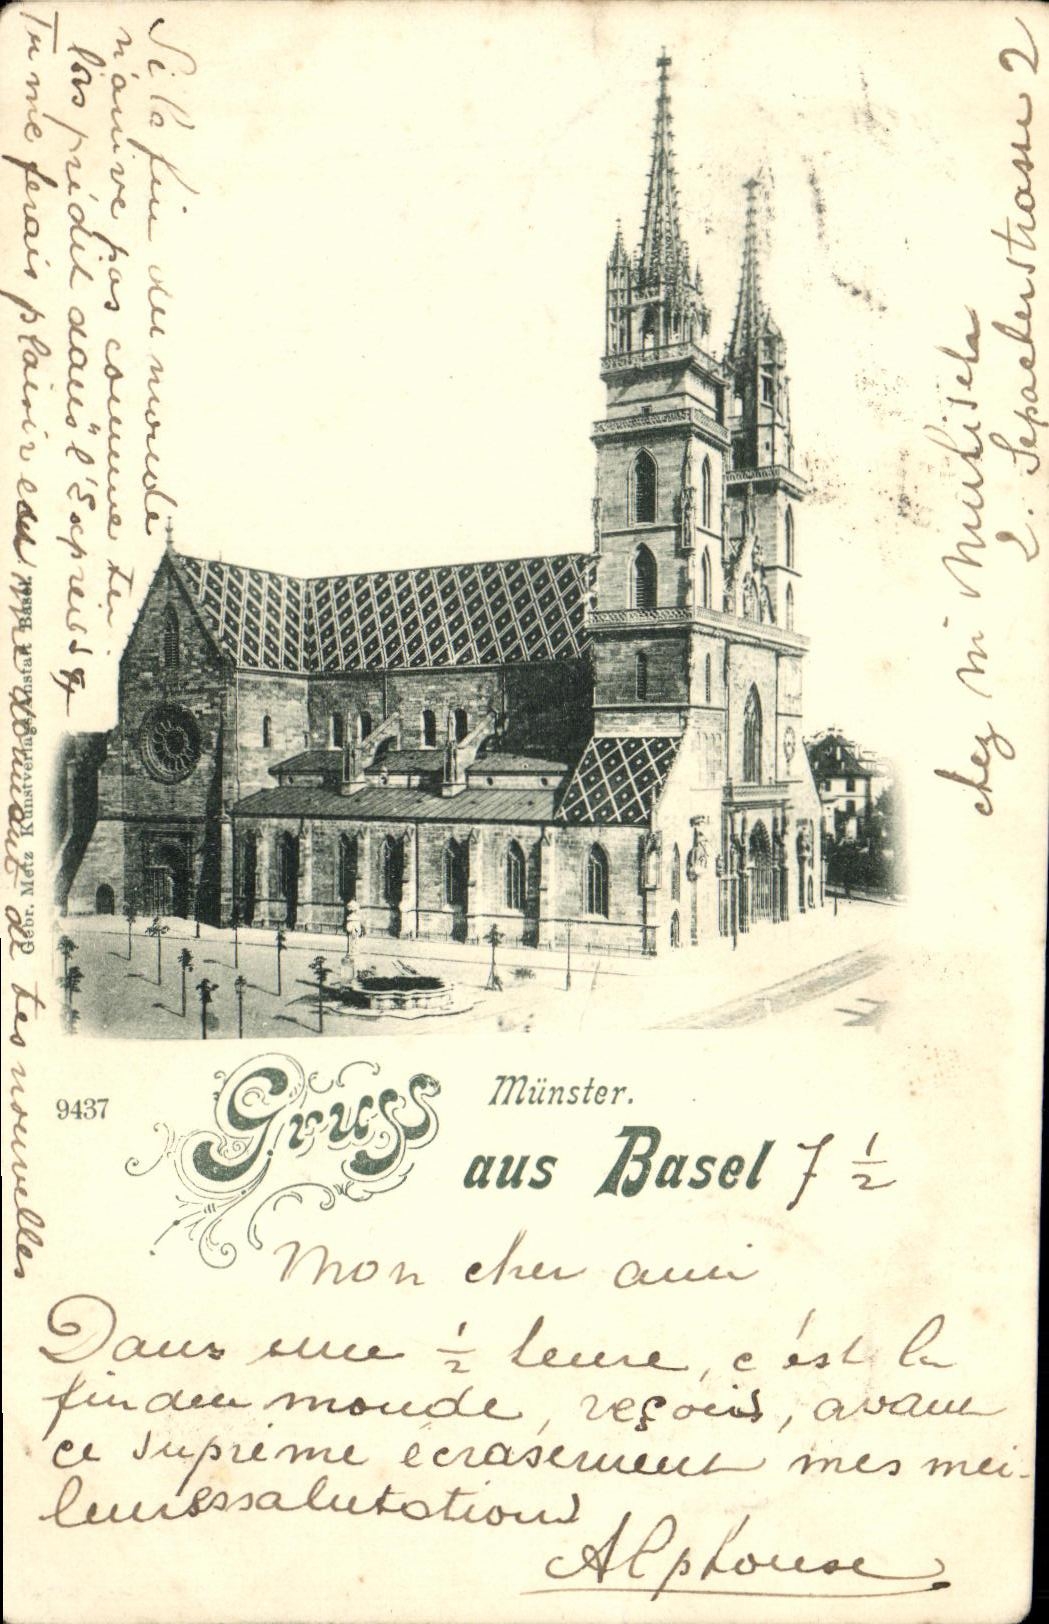 Si la fin du monde
n'arrive pas comme tu
l'as prédit dans "l'Express"
Tu me ferais plaisir en me donnant de tes nouvelles
Gebr. Metz Kunstverlagsanstalt Basel.
chez m
2. Sepacherstrasse 2
9437
Münster.
Gruss
aus Basel 7 1/2
Mon cher ami
Dans une 1/2 heure, c'est la
fin du monde, reçois, avant
ce suprème écrasement mes mei-
leures salutations
Alphonse